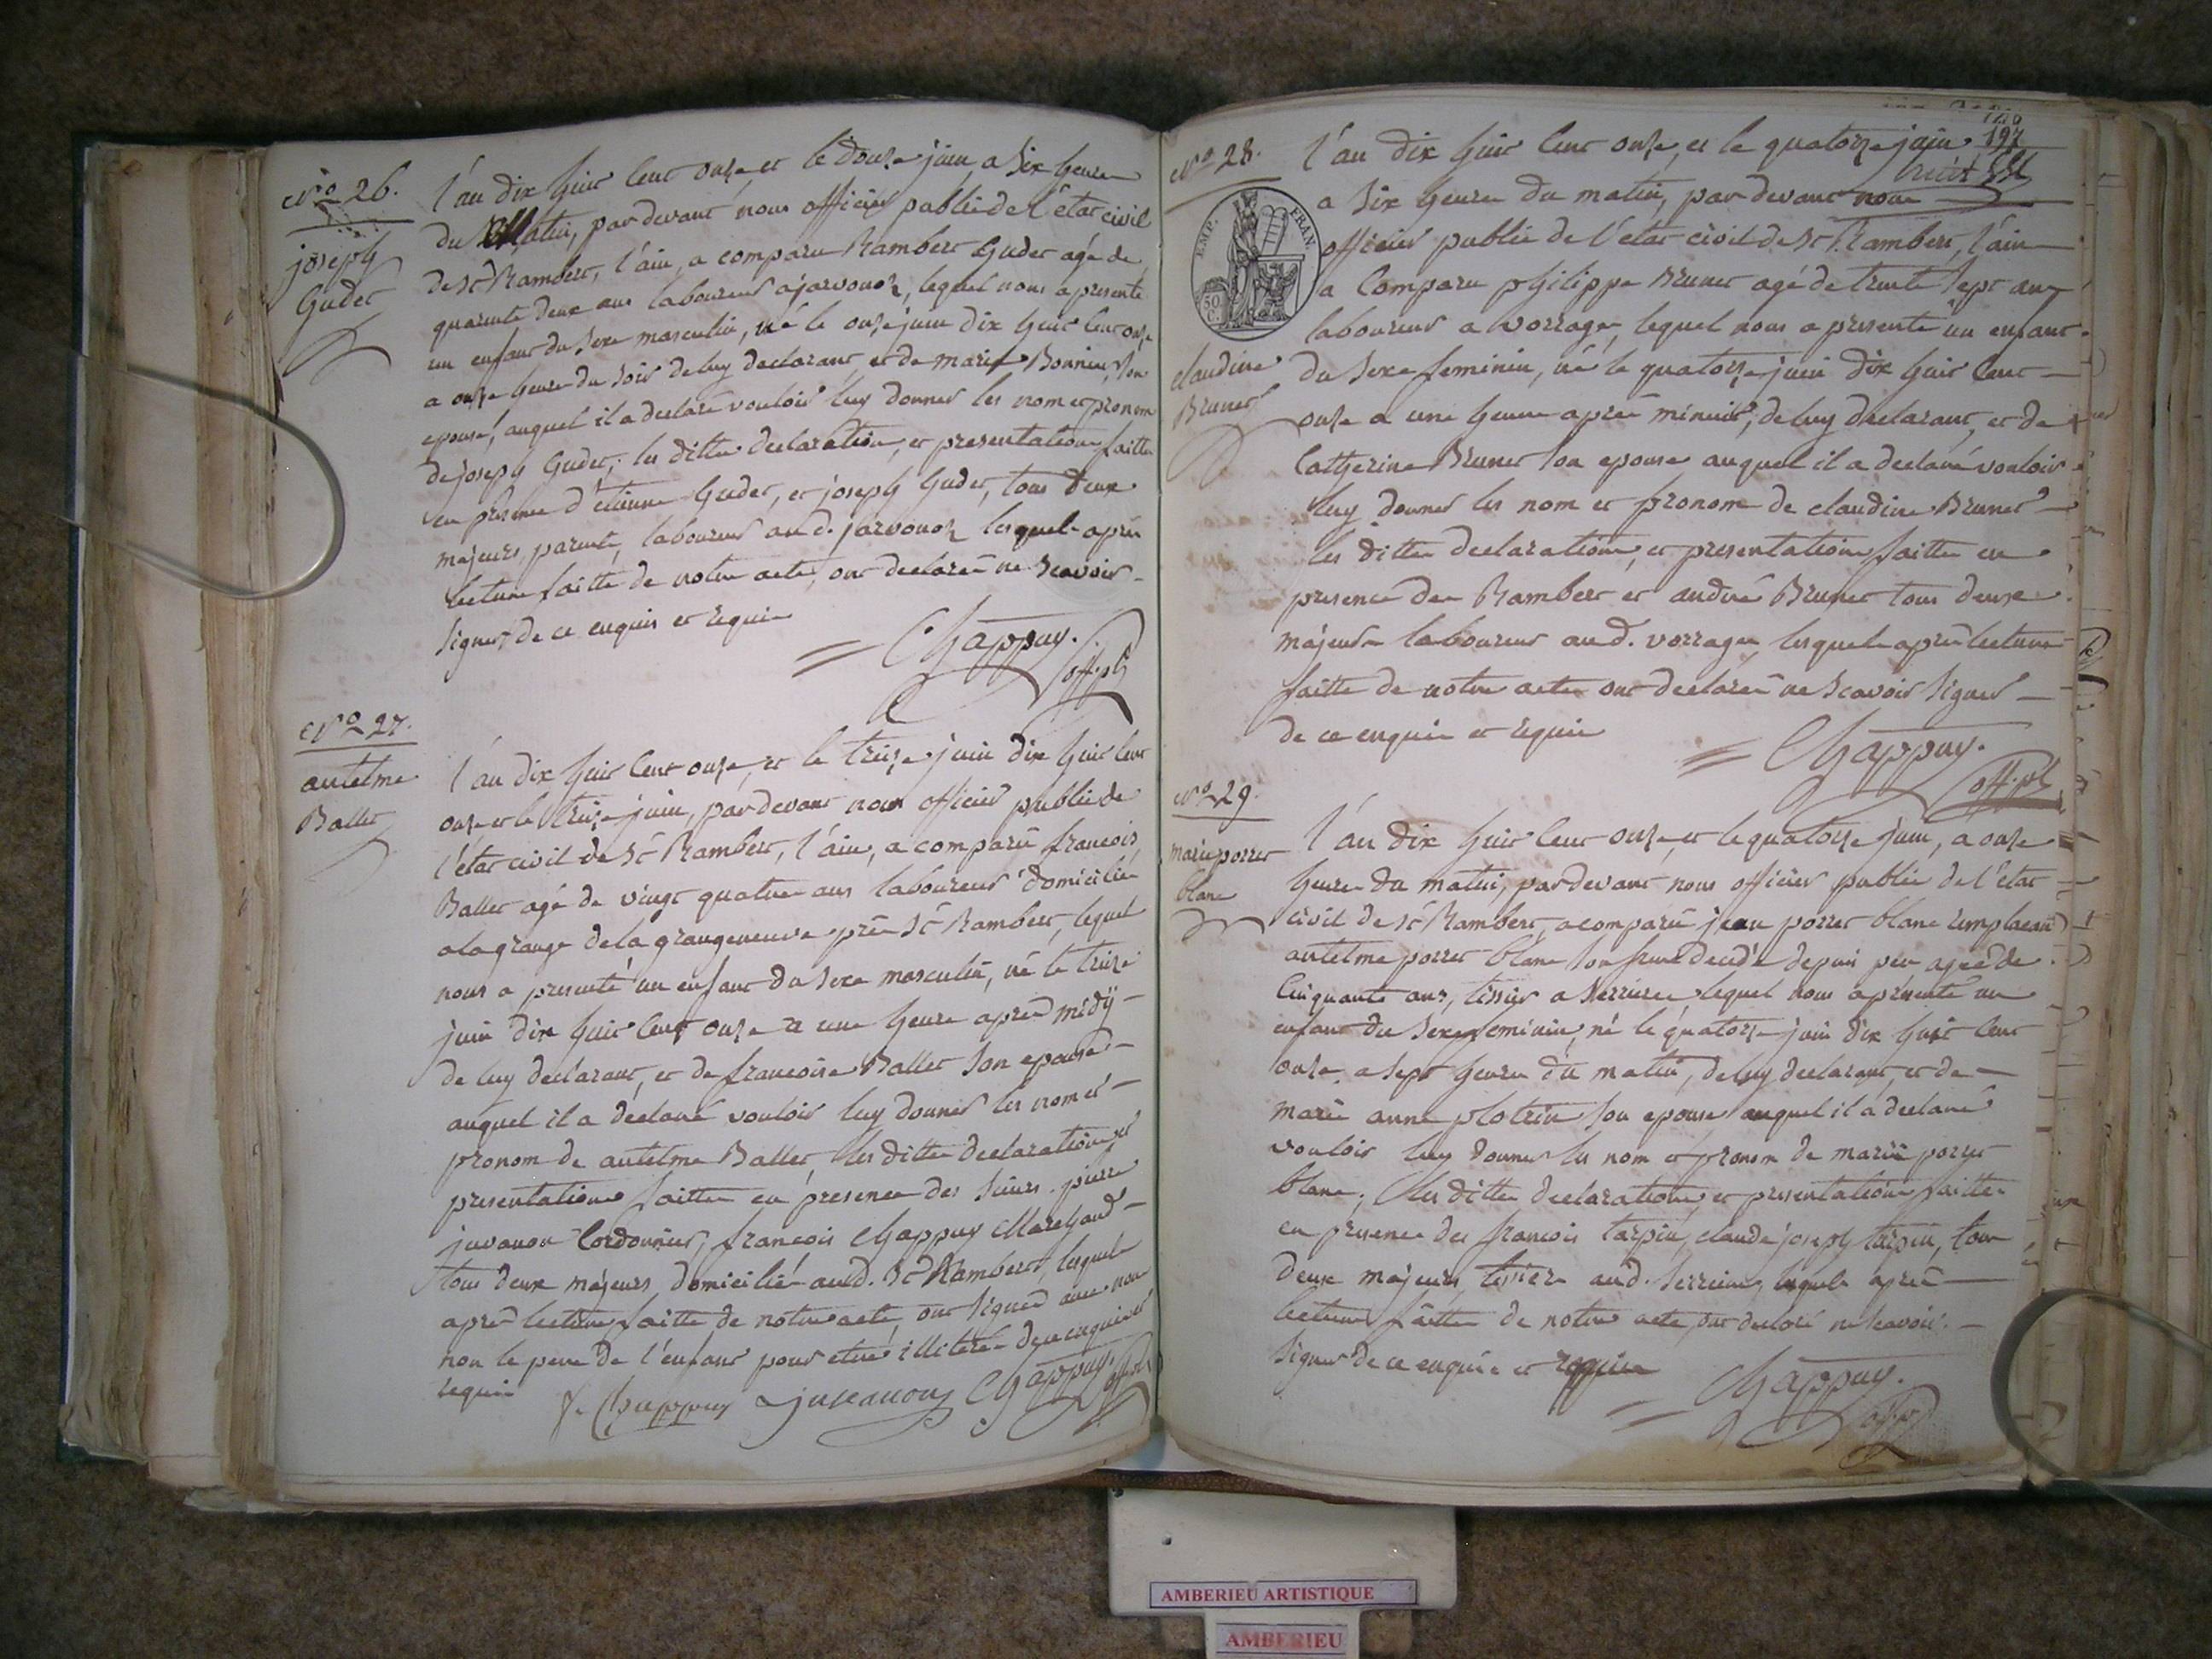 N.º 26.
joseph
Gudet
L'an dix huit cent onze et le douze juin a six heures
du Matin, pardevant nous officier public de l'état civil
de St Rambert, l'ain, a comparu Rambert Gudet agé de
quarante deux ans laboureur a javornoz, lequel nous a presenté
un enfant du sexe masculin, né le onze juin dix huit cent onze
a onze heures du soir de luy declarant, et de marie Bonnin, son
epouse, auquel il a declaré vouloir luy donner les nom et pronom
de joseph Gudet; les dittes declaration, et presentation faittes
en presence d'étienne Gudet, et joseph Gudet, tous deux
majeurs, parents, laboureurs aud. jarvonoz lesquels après
lecture faitte de notre acte, ont declarés ne scavoir
signer de ce enquis et requis
Chappuy.
off. pb
N.º 27.
antelme
Ballet
L'an dix huit cent onze, et le treize juin dix huit cent
onze et le treize juin, pardevant nous officier public de
l'état civil de St Rambert, l'ain, a comparu francois
Ballet agé de vingt quatre ans laboureur domicilié
a la grange de la grangeneuve près St Rambert, lequel
nous a presenté un enfant du sexe masculin, né le treize
juin dix huit cent onze a une heure après midÿ
de luy declarant, et de francoise Ballet son epouse
auquel il a declaré vouloir luy donner les nom et
pronom de antelme Ballet, les dittes declaration et
presentation faittes en presence des sieurs pierre
juvanon Cordonnier, francois Chappuy Marchand
tous deux majeurs, domiciliés aud. St Rambert, lesquels
après lecture faitte de notre acte, ont signés avec nous
non le pere de l'enfant pour etre illiteré de ce enquis et
requis
f. Chappuy juvanon Chappuy. off. pb
197
huit
N.º 28.
EMP. FRAN.
50 C.
claudine
Brunet
L'an dix huit cent onze, et le quatorze juin
a six heures du matin, pardevant nous
officier public de l'état civil de St Rambert, l'ain
a Comparu philippe Brunet agé de trente sept ans
laboureur a vorrage, lequel nous a presenté un enfant
du sexe feminin, né le quatorze juin dix huit cent
onze a une heure après minuit, de luy declarant, et de
Catherine Brunet son epouse auquel il a declaré vouloir
luy donner les nom et pronom de claudine Brunet
les dittes declaration, et presentation faittes en
presence des Rambert et andré Brunet tous deux
majeurs laboureurs aud. vorrages, lesquels après lecture
faitte de notre acte ont declarés ne scavoir signer
de ce enquis et requis
Chappuy.
off. pb
N.º 29.
marie porret
blanc
L'an dix huit cent onze, et le quatorze juin, a onze
heures du matin, pardevant nous officier public de l'état
civil de St Rambert, a comparu jean porret blanc remplacant
antelme porret blanc son frere decedé depuis peu agé de
Cinquante ans, tissier a Serrieres lequel nous a presenté un
enfant du sexe feminin, né le quatorze juin dix huit cent
onze, a sept heures du matin, de luy declarant, et de
marie anne plotrin son epouse auquel il a declaré
vouloir luy donner les nom et pronom de marie porret
blanc; les dittes declaration et presentation faittes
en presence des francois tarpin, claude joseph tarpin, tous
deux majeurs, tissiers aud. Serrieres, lesquels après
lecture faitte de notre acte, ont declaré ne scavoir
signer de ce enquis et requis
Chappuy.
off. pb
AMBERIEU ARTISTIQUE
AMBERIEU